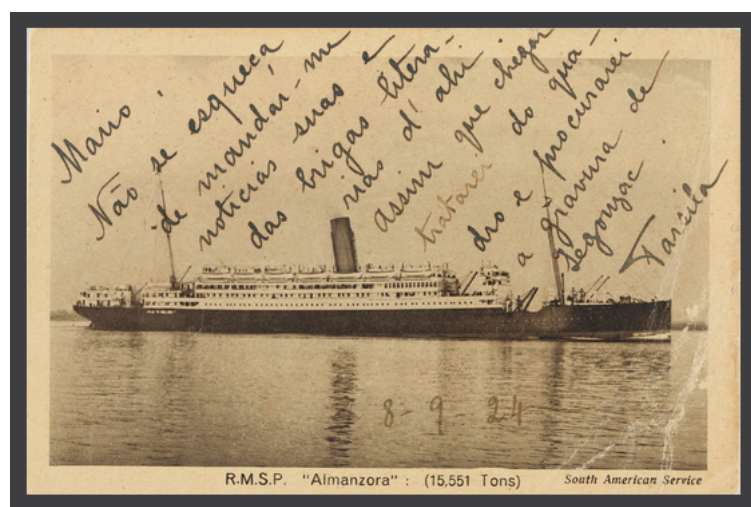 Mario,
Não se esqueça
de mandar-me
noticias suas e
das brigas litera-
rias d'ahi
assim que chegar
tratarei do qua-
dro e procurarei
a gravura de
Segonzac.
Tarsila
8-9-24
R.M.S.P. "Almanzora" : (15,551 Tons)
South American Service